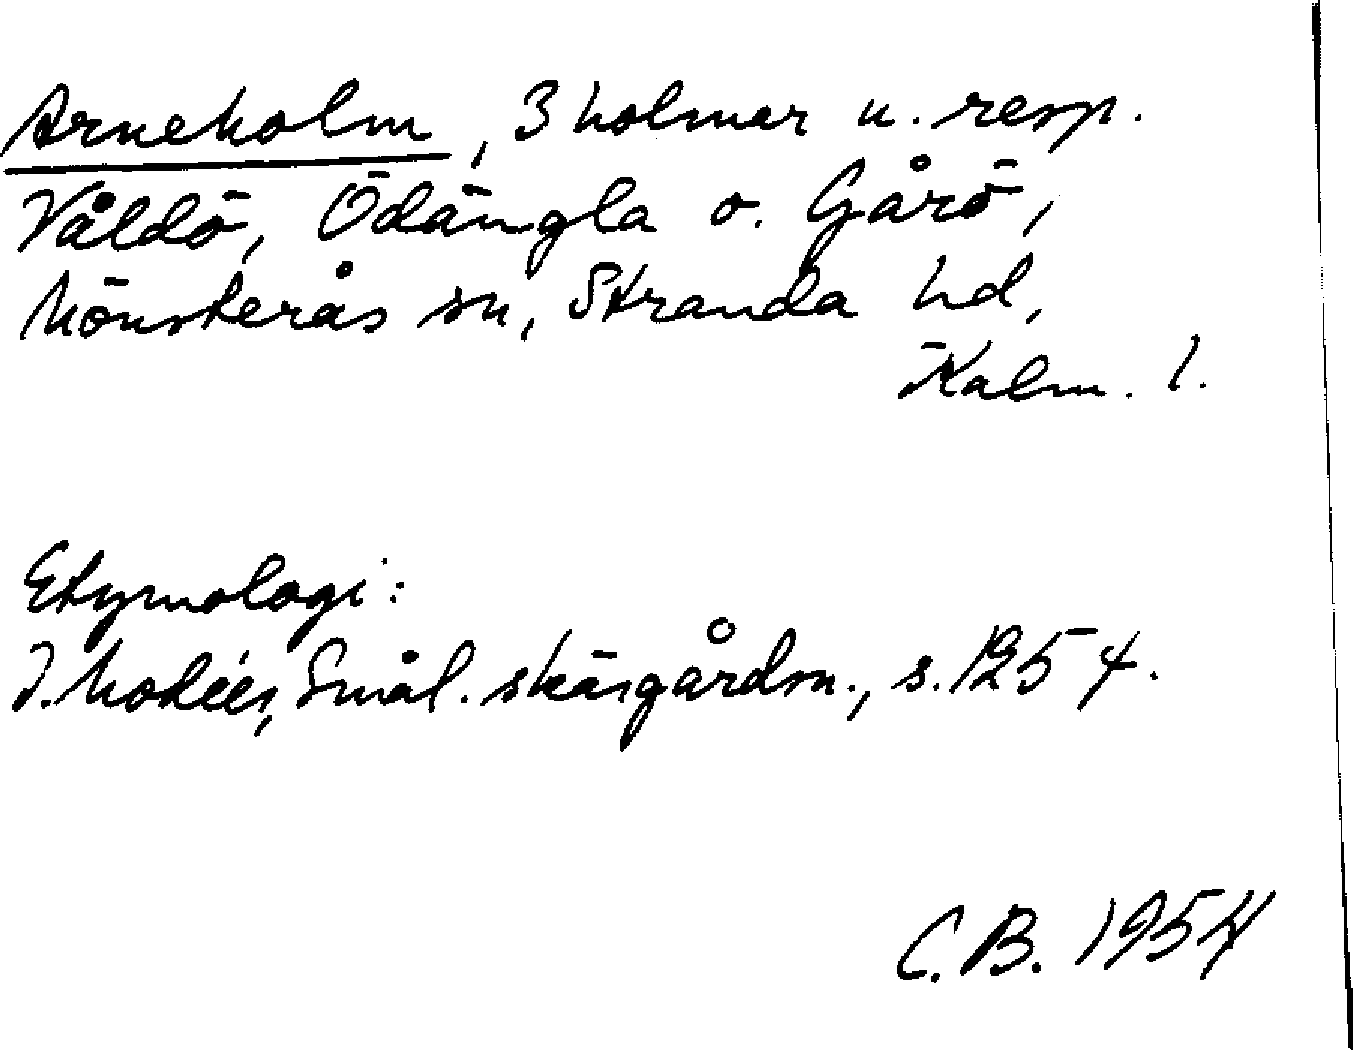 Arneholm, 3 holmar u. resp.
Våldö, Ödängla o. Gårö,
Mönsterås sn, Stranda hd,
Kalm. l.
Etymologi:
I. Modéer, Smål. skärgårdsn., s. 125 f.
C. B. 1954